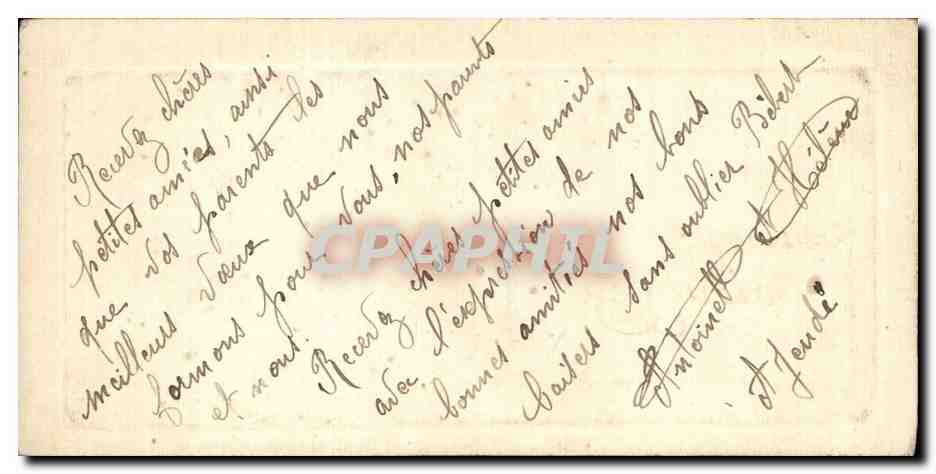 Recevez chères
petites amies, ainsi
que vos parents les
meilleurs vœux que nous
formons pour vous, nos parents
et nous.
Recevez chères petites amies
avec l'expression de nos
bonnes amitiés nos bons
baisers sans oublier Bébert
Antoinette et Hélène
CPAPHIL